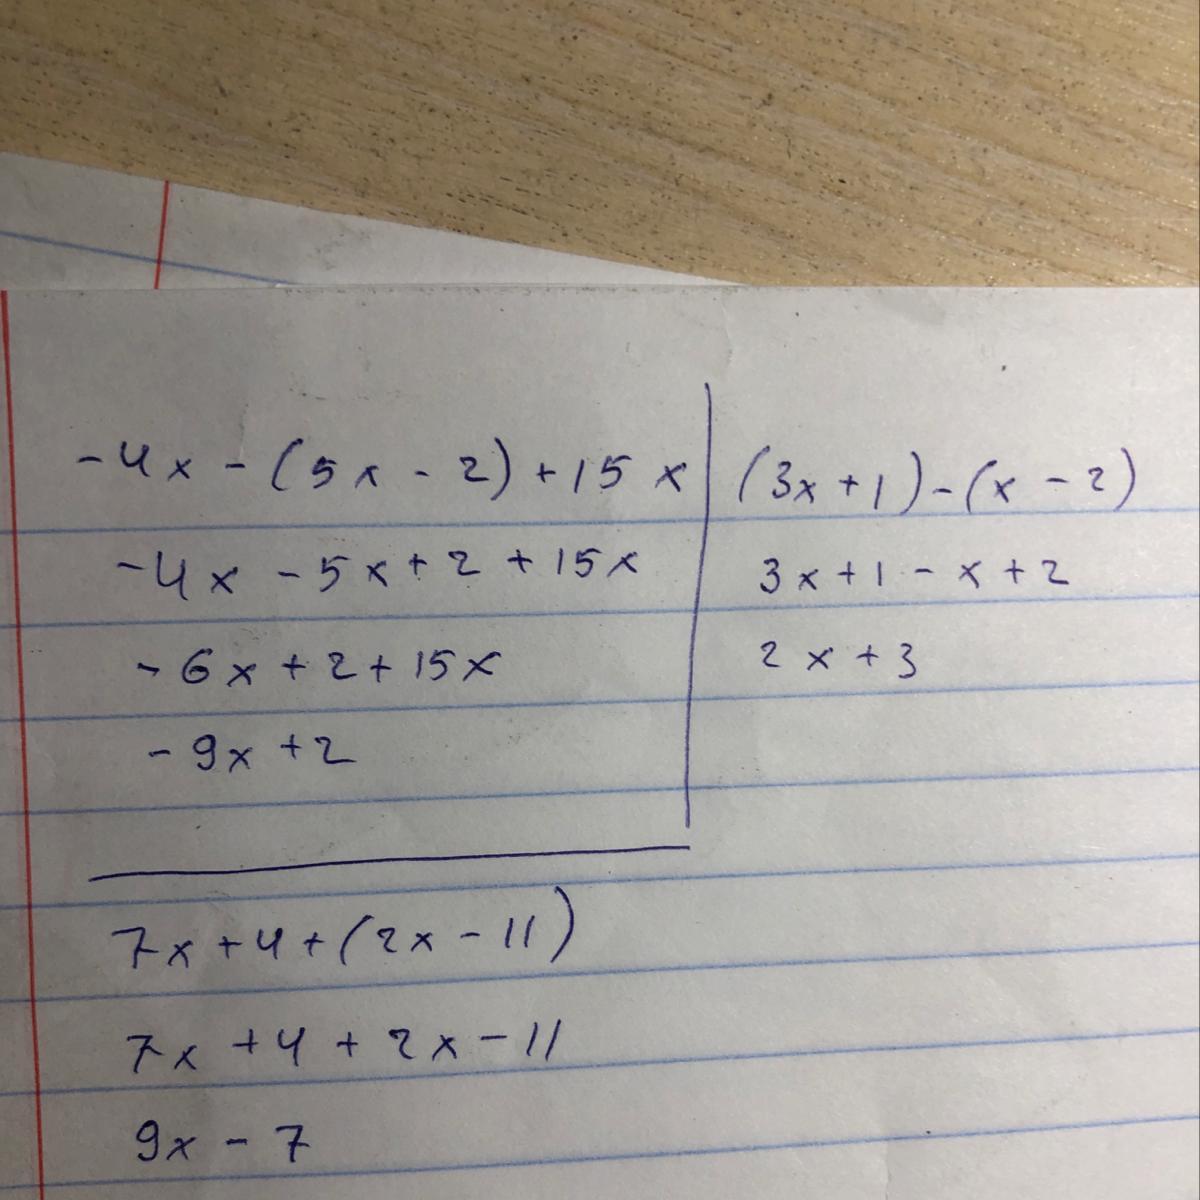 -4x - (5x - 2) + 15x
-4x - 5x + 2 + 15x
-6x + 2 + 15x
-9x + 2
(3x + 1) - (x - 2)
3x + 1 - x + 2
2x + 3
7x + 4 + (2x - 11)
7x + 4 + 2x - 11
9x - 7